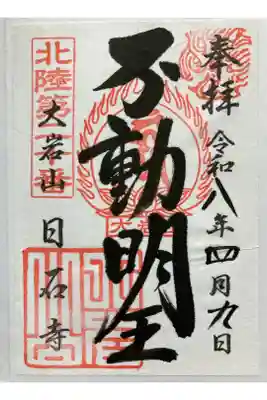 奉拝
令和八年四月九日
不動明王
北陸第番
大岩山
日石寺